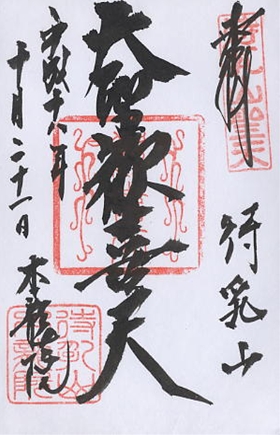 奉拝
待乳山
大聖歓喜天
平成十八年
十月二十一日
本龍院